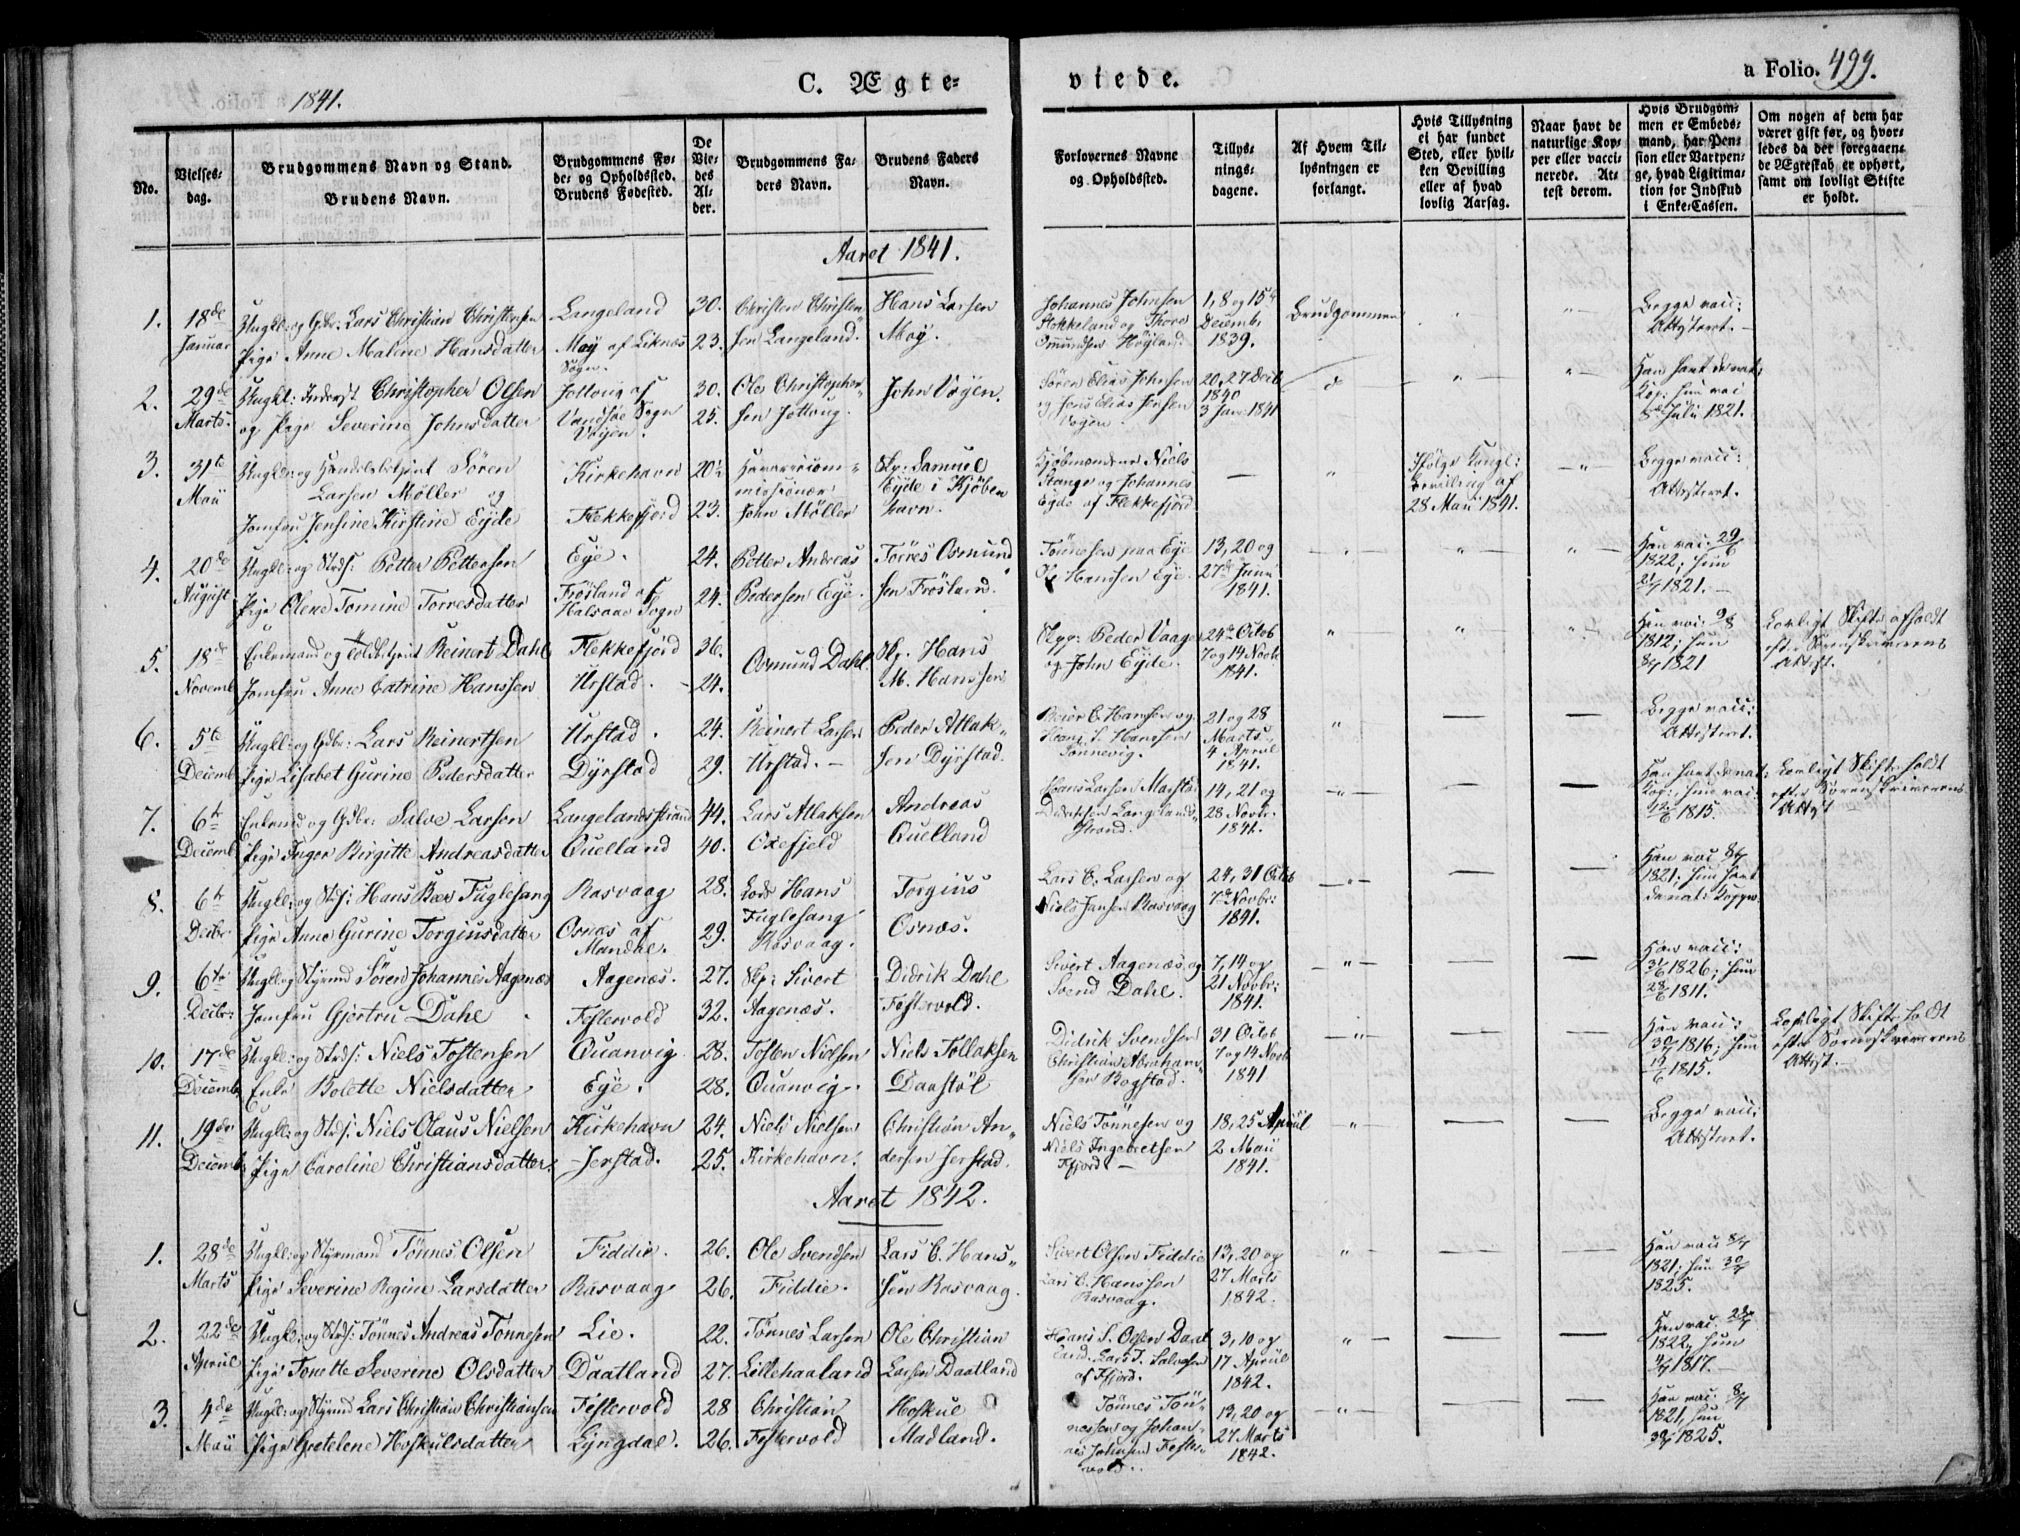 1841.
C. Ægte-
viede.
a Folio. 499.
No.
Vielses-
dag.
Brudgommens Navn og Stand.
Brudens Navn.
Brudgommens Fø-
de- og Opholdssted.
Brudens Fødested.
De
Vie-
des
Al-
der.
Brudgommens Fa-
ders Navn.
Brudens Faders
Navn.
Forlovernes Navne
og Opholdssted.
Tillys-
nings-
dagene.
Af Hvem Til-
lysningen er
forlangt.
Hvis Tillysning
ei har fundet
Sted, eller hvil-
ken Bevilling
eller af hvad
lovlig Aarsag.
Naar havt de
naturlige Kop-
per eller vacci-
nerede. At-
test derom.
Hvis Brudgom-
men er Embeds-
mand, har Pen-
sion eller Vartpen-
ge, hvad Ligitima-
tion for Indskud
i Enke-Cassen.
Om nogen af dem har
været gift før, og hvor-
ledes da det foregaaen-
de Ægteskab er ophørt,
samt om lovligt Skifte
er holdt.
Aaret 1841.
1. 18de Januar
Ungkl: og Gdbr: Lars Christian Christensen
Pige Anne Malene Hansdatter
Langeland
Møÿ af Liknæs
Sogn.
30.
23.
Christen Christen-
sen Langeland.
Hans Larsen
Møÿ.
Johannes Johnsen
Stokkeland og Thore
Omundsen Høyland.
1, 8 og 15de
Decembr
1839.
Brudgommen
Begge vacc:
Attesteret.
2. 29de Marts.
Ungkl: Inderst Christopher Olsen
og Pige Severine Johnsdatter
Jottoug af
Vandsøe Sogn
Vöÿen.
30.
25.
Ole Christopher-
sen Jottoug.
John Vöÿen.
Sören Elias Johnsen
og Jens Elias Jensen
Vögen.
20, 27 Decb
1840
3 Janr 1841
Han havt de nat:
Kop: hun vac
8de Julii 1821.
3. 31te Maii
Ungkl: og Handelsbetjent Sören
Larsen Møller og
Jomfru Jensine Kirstine Eÿde
Kirkehavn
Flekkefjord
20½
23.
missionær
John Møller
Skp: Samuel
Eÿde i Kjöben
havn.
Kjöbmændene Niels
Stange og Johannes
Eÿde af Flekkefjord
Ifölge Kongl:
Bevilling af
28 Maii 1841.
Begge vacc:
Attesteret.
4. 20de August
Ungkl: og Strds: Petter Pettersen
Pige Olene Tomine Torresdatter
Eÿe.
Fröÿland af
Halsaae Sogn
24.
24.
Petter Andreas
Pedersen Eÿe.
Törres Osmund
sen Fröÿland.
Tönnesen paa Eÿe
Ole Hansen Eÿe.
13, 20 og
27de Junii
1841.
Han vac: 29/6
1822; hun
21/7 1821.
5. 18de Novemb
Enkemand og Toldbetjent Reinert Dahl
Jomfru Anne Catrine Hanssen
Flekkefjord
Urstad.
36.
24.
Osmund Dahl
Skp. Hans
M. Hanssen
Skpp: Peder Vaage
og John Eÿde.
24de Octob
7 og 14 Novb
1841.
Han vac: 9/8
1812; hun
8/7 1821
Lovligt Skifte afholdt
efter Sorenskriverens
Attest.
6. 5te Decemb
Ungkl: og Gdbr: Lars Reinertsen
Pige Lisabet Gurine Pedersdatter
Urstad.
Dÿrstad
24.
29.
Reinert Larsen
Urstad.
Peder Atlak-
sen Dÿrstad.
Reier C. Hansen og
Hans L. Hanssen
Tönnevig.
21 og 28
Marts
4 Aprul
1841.
Begge vacc:
Attesteret.
7. 6te Decemb
Enkemd og Gdbr: Salve Larsen
Pige Inger Birgitte Andreasdatter
Langelandsstrand
Quelland
44.
40.
Lars Atlaksen
Oxefjeld
Andreas
Quelland
Hans Larsen Marstad
Didriksen Langelands-
strand.
14, 21 og
28 Novbr.
1841.
Han havt de nat:
Kop:, hun vac:
12/6 1815.
Lovligt Skifte holdt
efter Sorenskriverens
Attest
8. 6te Decbr
Ungkl: og Strds: Hans Beer Fuglesang
Pige Anne Gurine Torgiusdatter
Rasvaag
Osnæs af
Mandal.
28.
29.
Lods Hans
Fuglesang
Rasvaag.
Torgius
Osnæs.
Lars C. Larsen og
Niels Jansen Rasvaag
24, 31 Octob
7de Novbr:
1841.
Han vac 8/7
1821; hun havt
de nat: Kopper.
9. 6te Decbr:
Ungkl: og Styrmd Sören Johannes Aagenæs
Jomfru Gjertru Dahl
Aagenæs.
Festervold
27.
32.
Skp: Sivert
Aagenæs.
Didrik Dahl
Festervold.
Sivert Aagenæs og
Svend Dahl.
7, 14 og
21 Novbr:
1841.
Han vacc:
31/6 1826; hun
28/6 1811.
10. 17de Decemb
Ungkl: og Strds: Niels Tostensen
Enke Bolette Nielsdatter
Quanvig
Eÿe.
28.
28.
Tosten Nielsen
Quanvig.
Niels Tollaksen
Daastöl
Didrik Svendsen
Christian Abraham-
sen Bogstad.
31 Octob
7 og 14 Novb
1841
Han vac:
30/7 1816; hun
19/6 1815.
Lovligt Skifte holdt
efter Sorenskriverens
Attest.
11. 19de Decemb
Ungkl: og Strds: Niels Olaus Nielsen
Pige Caroline Christiansdatter
Kirkehavn
Jerstad.
24.
25.
Niels Nielsen
Kirkehavn.
Christian An-
dersen Jerstad.
Niels Tönnesen og
Niels Ingebretsen
Ffjord
18, 25 Aprul
2 Maii
1841.
Begge vacc:
Attesteret.
Aaret 1842.
1. 28de Marts
Ungkl: og Styrmand Tönnes Olsen
Pige Severine Regine Larsdatter
Fiddie.
Rasvaag
26.
26.
Ole Svendsen
Fiddie.
Lars C. Hans-
sen Rasvaag.
Sivert Olsen Fiddie
Lars C. Hanssen
Rasvaag.
13, 20 og
27 Marts
1842.
Han vac 8/7
1821; hun 30/7
1825.
2. 22de Aprul
Ungkl: og Strds: Tönnes Andreas Tönnesen
Pige Tonette Severine Olsdatter
Lie.
Daatland
22.
27.
Tönnes Larsen
Lillehaaland
Ole Christian
Larsen Daatland
Hans S. Olsen Daat
land. Lars T. Salvesen
af Ffjord.
3, 10 og
17 Aprul
1842.
Han vac:
1822, hun
4/7 1817.
3. 4de Maii
Ungkl: og Styrmd Lars Christian Christiansen
Pige Gretelene Hoskulsdatter
Festervold
Lÿngdal.
28
26.
Christian
Festervold
Hoskul
Madland.
Tönnes Tön-
nessen og Johan-
nes Johnsen Fester-
vold.
13, 20 og
27 Marts
1842.
Han vac: 8/7
1821, hun
30/7 1825.